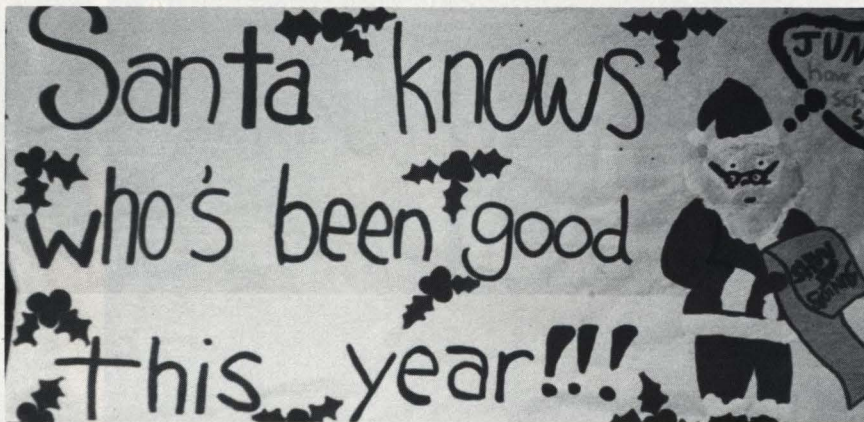 Santa knows
who's been good
this year!!!
JUN
have
sci
S